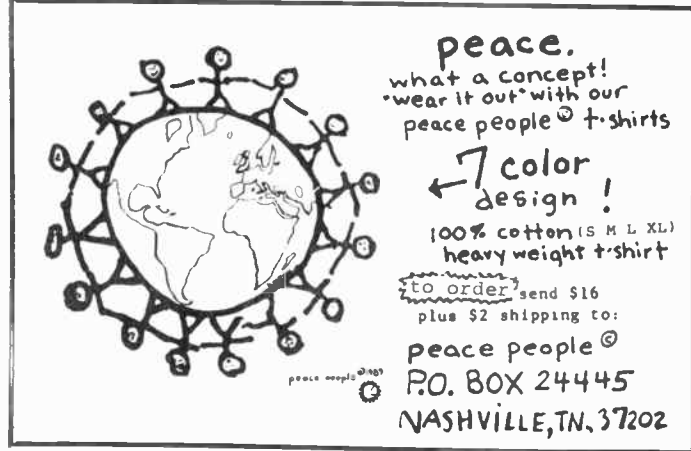 peace.
what a concept!
"wear it out" with our
peace people © t-shirts
7 color
design !
100% cotton (S M L XL)
heavy weight t-shirt
to order send $16
plus $2 shipping to:
peace people ©
P.O. BOX 24445
NASHVILLE, TN. 37202
peace people © 1989